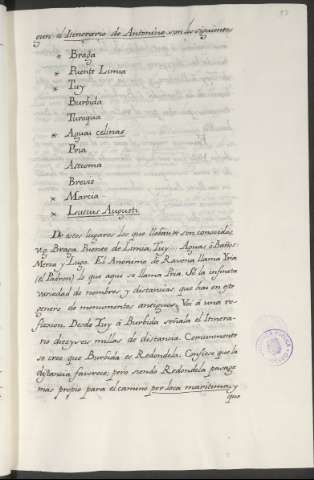 gun el Itinerario de Antonino son los siguientes
* Braga
* Puente Limia
* Tuy
Burbida
Turoqua
* Aguas celinas
Pria
Asseconia
Brevis
* Marcia
* Lucus Augusti
De estos lugares los que llevan * son conocidos
v.g. Braga, Puente de Limia, Tuy, Aguas ò Baños
Mera, y Lugo. El Anonimo de Ravena llama Iria
(el Padron) lo que aqui se llama Pria. Sè la infinita
variedad de nombres, y distancias, que hai en este
genero de monumentos antiguos. Voi à una re-
flexion. Desde Tuy à Burbida señala el Itinera-
rio diez y seis millas de distancia. Comunmente
se cree que Burbida es Redondela. Confieso que la
distancia favorece; pero siendo Redondela parage
mas propio para el camino per loca maritima, y
que